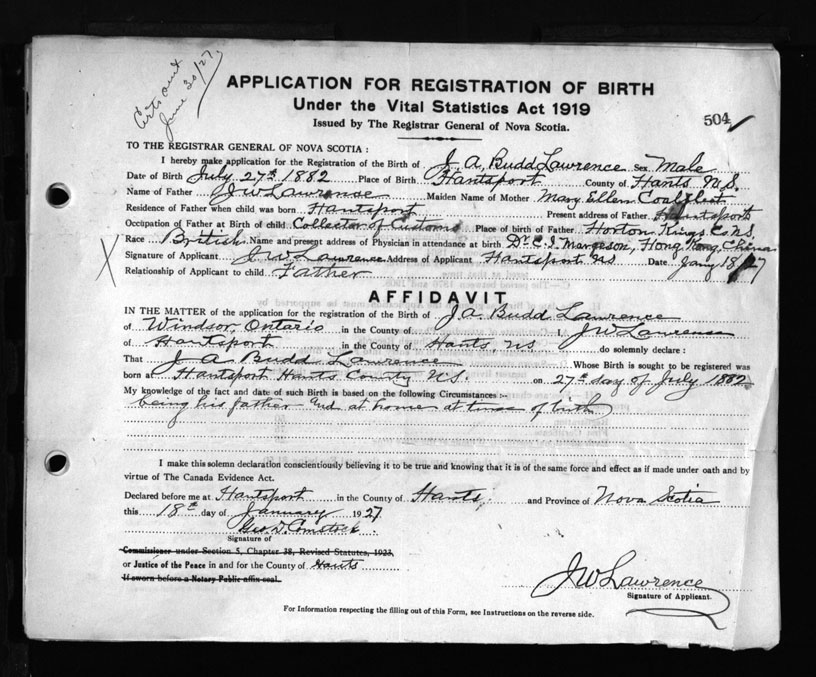 Certs out
June 30/27
APPLICATION FOR REGISTRATION OF BIRTH
Under the Vital Statistics Act 1919
Issued by The Registrar General of Nova Scotia.
504
TO THE REGISTRAR GENERAL OF NOVA SCOTIA:
I hereby make application for the Registration of the Birth of J. A. Budd Lawrence Sex Male
Date of Birth July 27th 1882 Place of Birth Hantsport County of Hants N.S.
Name of Father J W Lawrence Maiden Name of Mother Mary Ellen Coalfleet
Residence of Father when child was born Hantsport Present address of Father Hantsport
Occupation of Father at Birth of child Collector of Customs Place of birth of Father Horton Kings Co NS.
Race British Name and present address of Physician in attendance at birth Dr C. I. Margeson, Hong Kong, China
Signature of Applicant J W Lawrence Address of Applicant Hantsport NS Date Jany 18/27
Relationship of Applicant to child Father
AFFIDAVIT
IN THE MATTER of the application for the registration of the Birth of J. A. Budd Lawrence
of Windsor, Ontario in the County of I, J W Lawrence
of Hantsport in the County of Hants, NS do solemnly declare:
That J A Budd Lawrence Whose Birth is sought to be registered was
born at Hantsport Hants County N.S. on 27th day of July 1882
My knowledge of the fact and date of such Birth is based on the following Circumstances:-
being his father and at home at time of birth
I make this solemn declaration conscientiously believing it to be true and knowing that it is of the same force and effect as if made under oath and by
virtue of The Canada Evidence Act.
Declared before me at Hantsport in the County of Hants, and Province of Nova Scotia
this 18th day of January 1927.
Geo. D. Comstock
Signature of
Commissioner under Section 5, Chapter 38, Revised Statutes, 1923,
or Justice of the Peace in and for the County of Hants
If sworn before a Notary Public affix seal.
J W Lawrence
Signature of Applicant.
For Information respecting the filling out of this Form, see Instructions on the reverse side.